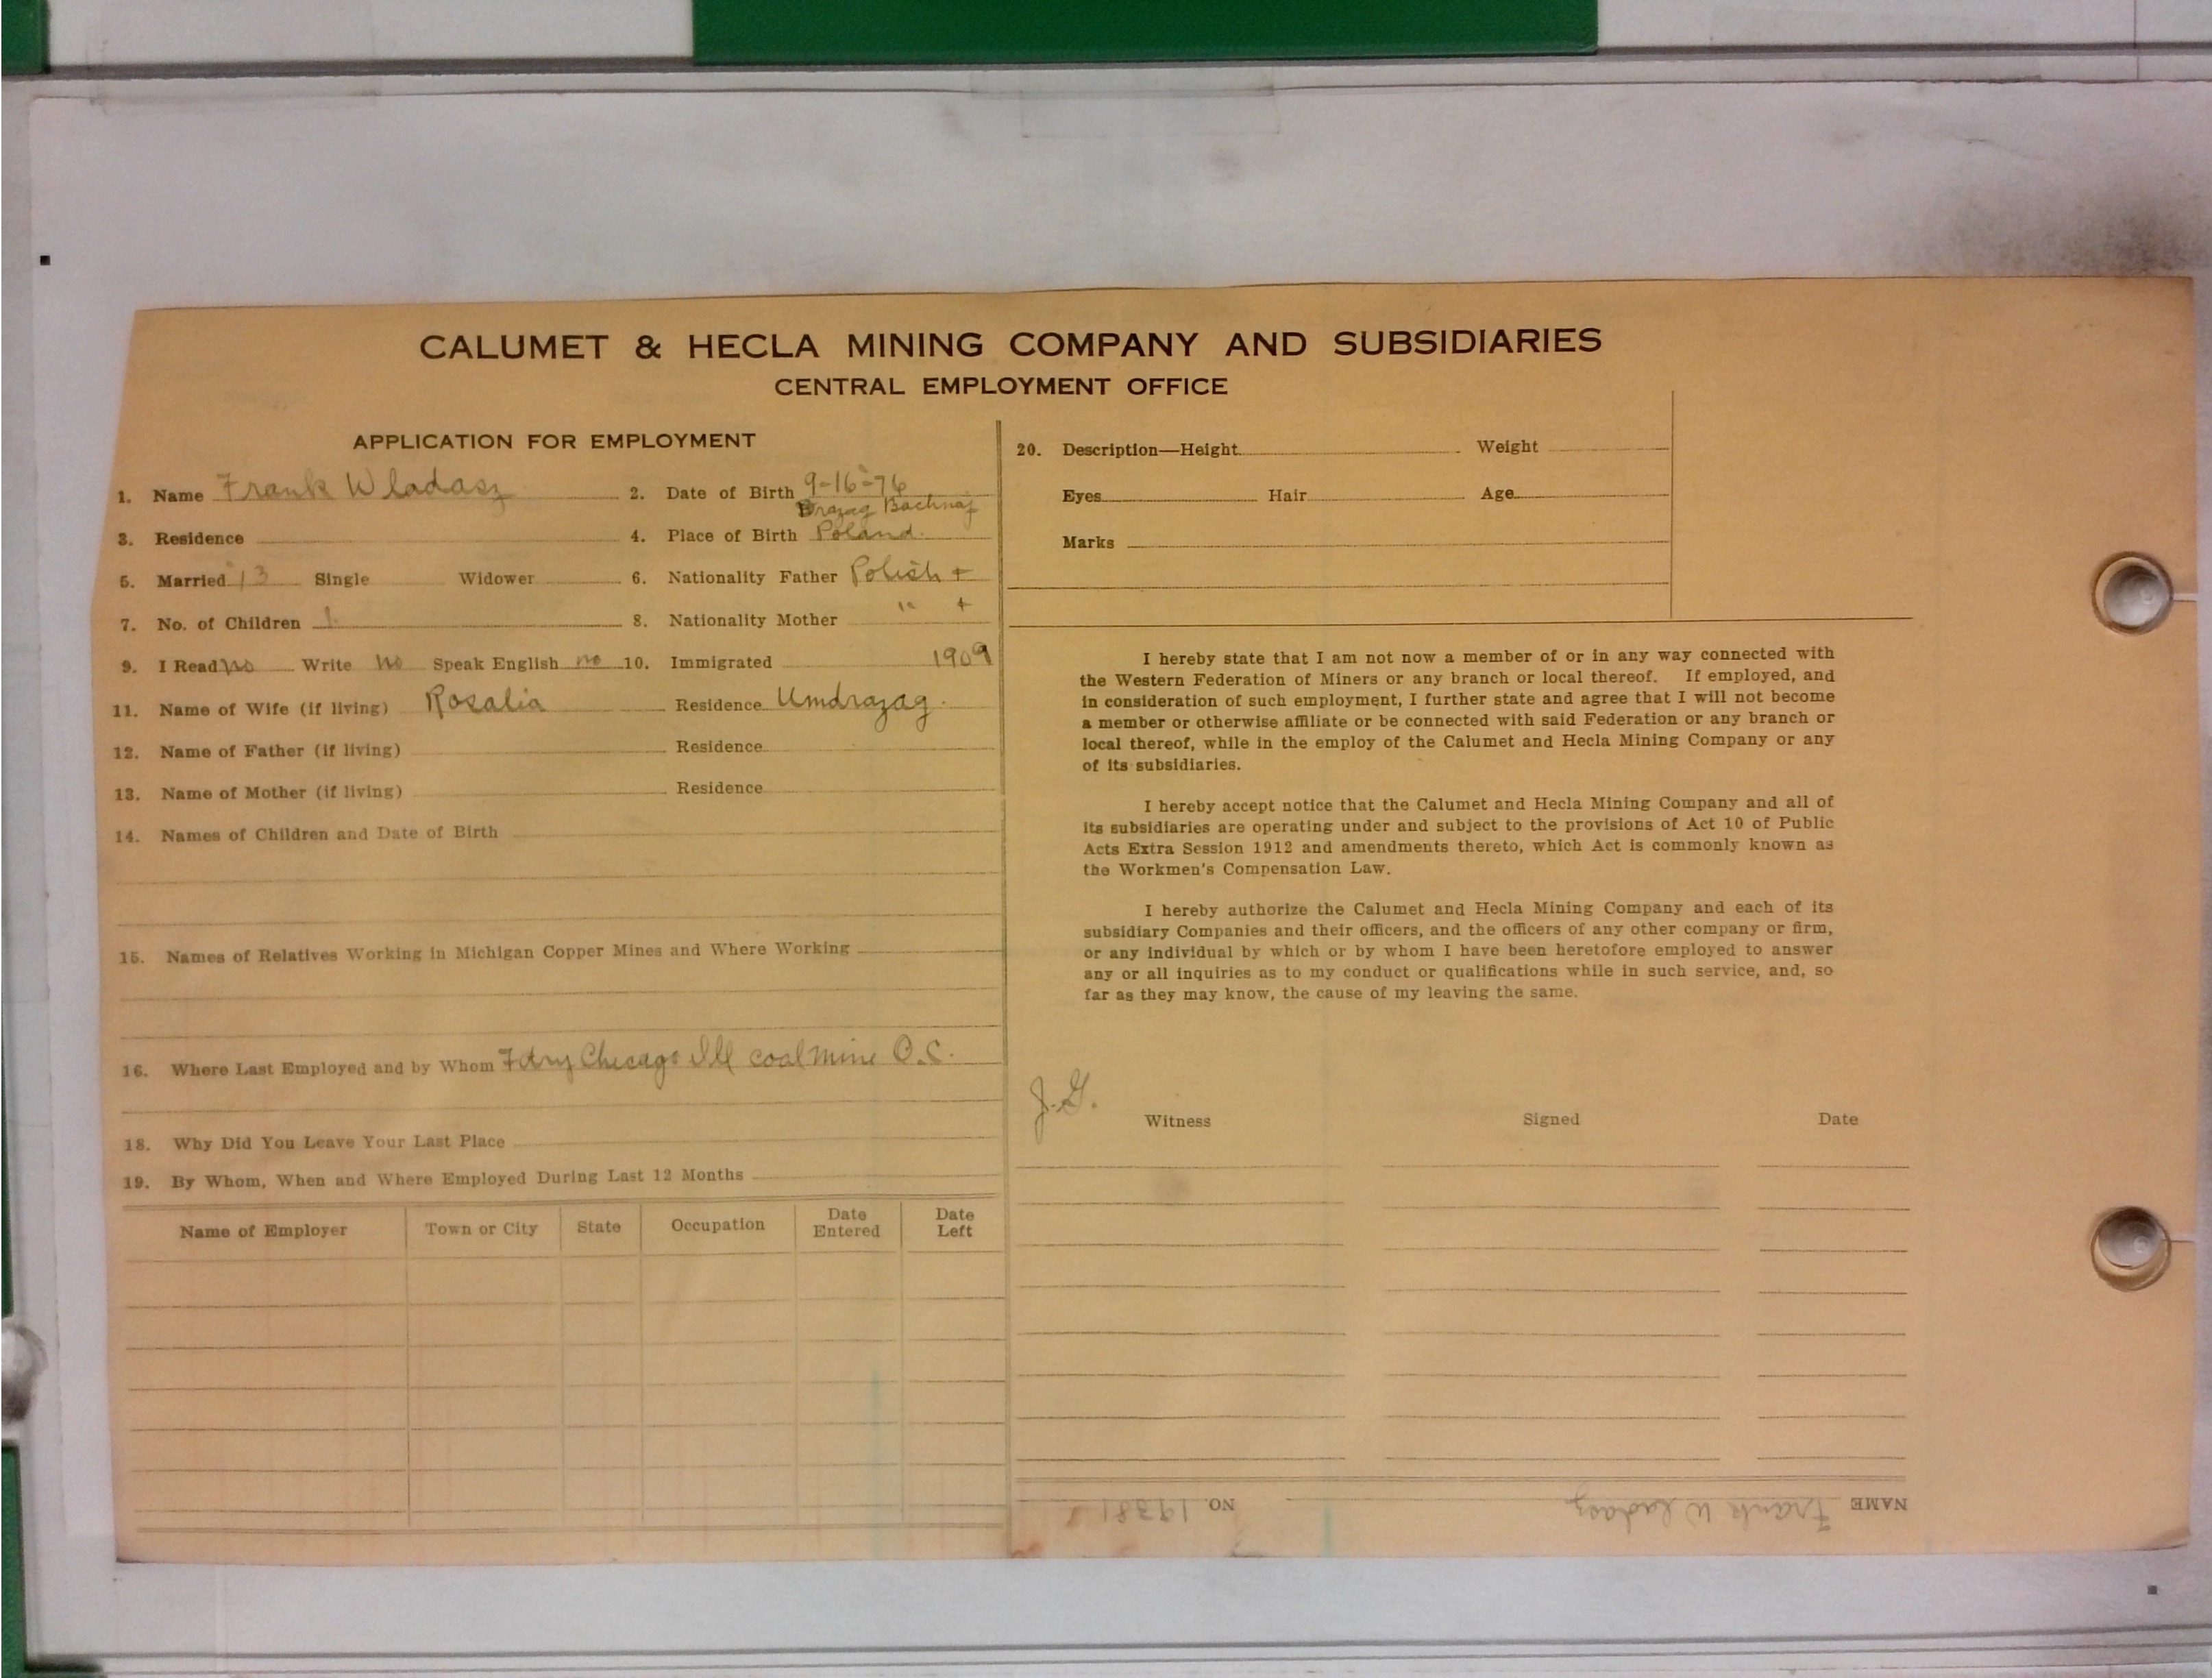 CALUMET & HECLA MINING COMPANY AND SUBSIDIARIES
CENTRAL EMPLOYMENT OFFICE
APPLICATION FOR EMPLOYMENT
1. Name Frank Wladasz 2. Date of Birth 9-16-76
3. Residence 4. Place of Birth Poland
5. Married 13 Single Widower 6. Nationality Father Polish +
7. No. of Children 1 8. Nationality Mother " +
9. I Read no Write no Speak English no 10. Immigrated 1909
11. Name of Wife (if living) Rosalia Residence Umdrazag
12. Name of Father (if living) Residence
13. Name of Mother (if living) Residence
14. Names of Children and Date of Birth
15. Names of Relatives Working in Michigan Copper Mines and Where Working
16. Where Last Employed and by Whom Fdry Chicago Ill coal mine O.C.
18. Why Did You Leave Your Last Place
19. By Whom, When and Where Employed During Last 12 Months
Name of Employer Town or City State Occupation Date Entered Date Left
20. Description—Height Weight
Eyes Hair Age
Marks
I hereby state that I am not now a member of or in any way connected with
the Western Federation of Miners or any branch or local thereof. If employed, and
in consideration of such employment, I further state and agree that I will not become
a member or otherwise affiliate or be connected with said Federation or any branch or
local thereof, while in the employ of the Calumet and Hecla Mining Company or any
of its subsidiaries.
I hereby accept notice that the Calumet and Hecla Mining Company and all of
its subsidiaries are operating under and subject to the provisions of Act 10 of Public
Acts Extra Session 1912 and amendments thereto, which Act is commonly known as
the Workmen's Compensation Law.
I hereby authorize the Calumet and Hecla Mining Company and each of its
subsidiary Companies and their officers, and the officers of any other company or firm,
or any individual by which or by whom I have been heretofore employed to answer
any or all inquiries as to my conduct or qualifications while in such service, and, so
far as they may know, the cause of my leaving the same.
J.G.
Witness Signed Date
NAME Frank Wladasz NO. 19381